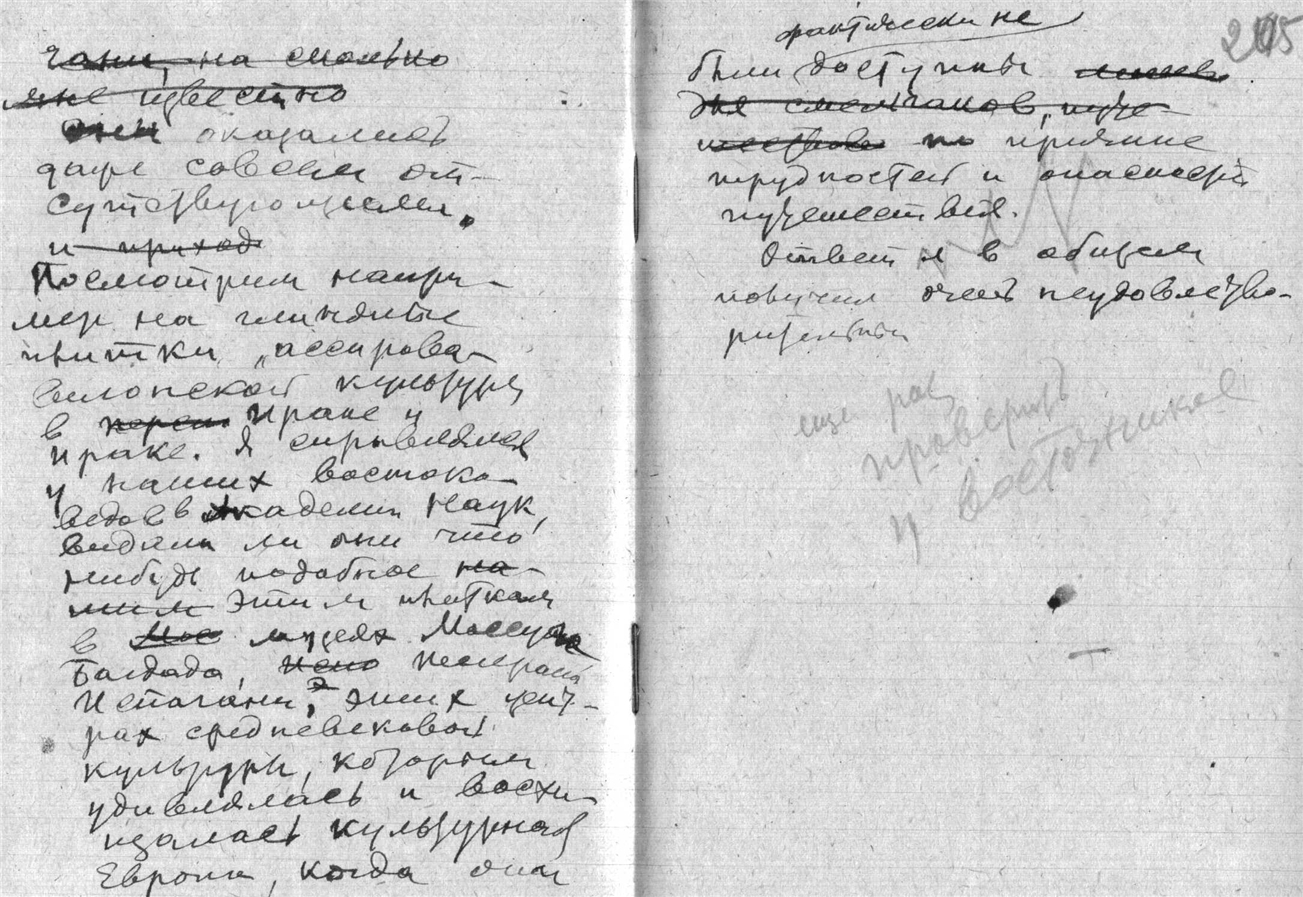 чани, на сколько
мне известно
они оказались
даже совсем от-
сутствующими.
и приход
Посмотрим напри-
мер на глиняные
плитки "ассирова-
вилонской культуры
в Иране и
Ираке. Я справлялся
у наших востоко-
ведов в Академии Наук,
видали ли они что
нибудь подобное на-
шим этим плиткам
в Мос музеях Моссула
Багдада,
Испагани, этих цент-
рах средневековой
культуры, которым
удивлялась и восхи-
щалась культурная
Европа, когда они
205
фактически не
были доступны
для смельчаков, путе-
по причине
трудностей и опасности
путешествия.
Ответ я в общем
получил очень неудовлетво-
рительный
еще раз
проверить
у восточников